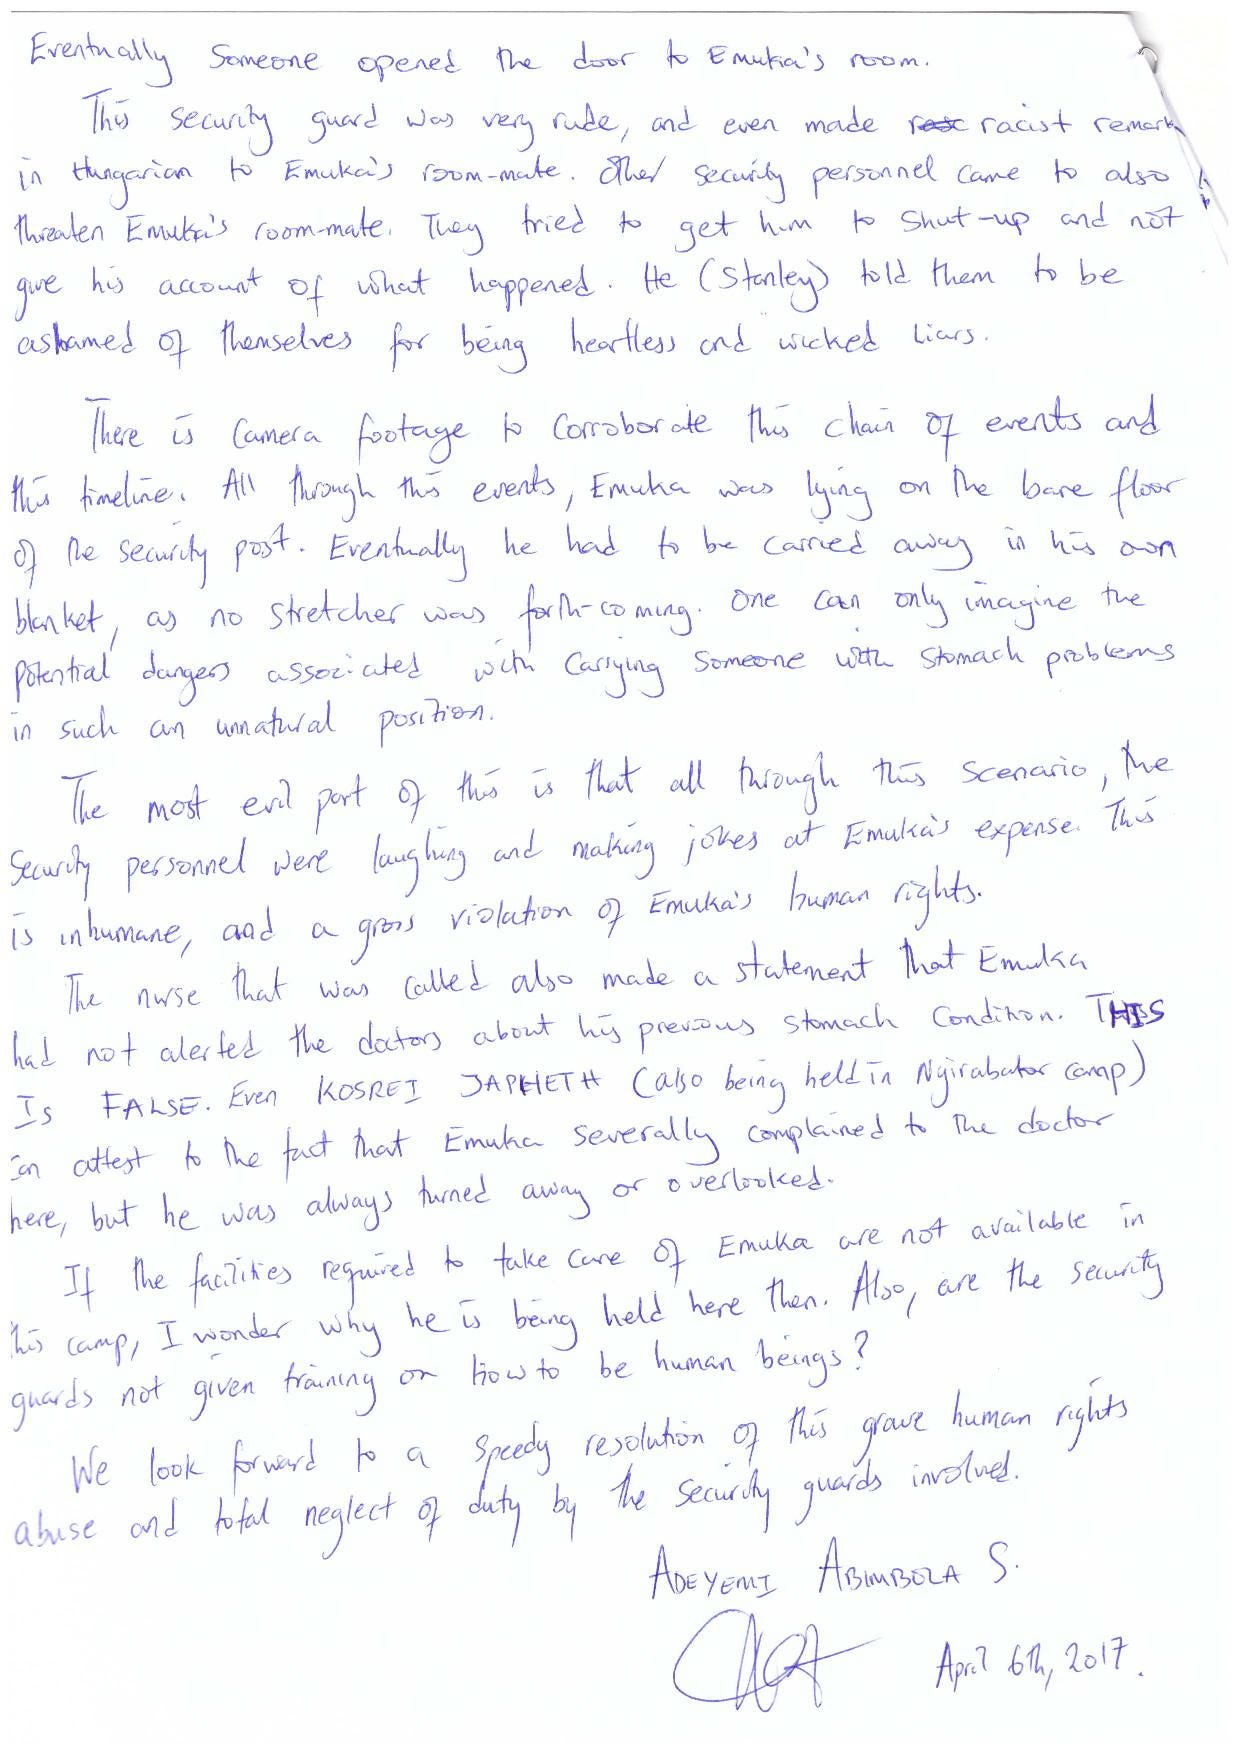 Eventually Someone opened the door to Emuka's room.
This security guard was very rude, and even made racist remark
in Hungarian to Emuka's room-mate. Other security personnel came to also
threaten Emuka's room-mate. They tried to get him to shut-up and not
give his account of what happened. He (Stanley) told them to be
ashamed of themselves for being heartless and wicked liars.
There is Camera footage to corroborate this chain of events and
this timeline. All through this events, Emuka was lying on the bare floor
of the security post. Eventually he had to be carried away in his own
blanket, as no stretcher was forth-coming. One can only imagine the
potential dangers associated with carrying someone with stomach problems
in such an unnatural position.
The most evil part of this is that all through this scenario, the
Security personnel were laughing and making jokes at Emuka's expense. This
is inhumane, and a gross violation of Emuka's human rights.
The nurse that was called also made a statement that Emuka
had not alerted the doctors about his previous stomach condition. THIS
IS FALSE. Even KOSREI JAPHETH (also being held in Nyirabator camp)
can attest to the fact that Emuka severally complained to the doctor
here, but he was always turned away or overlooked.
If the facilities required to take care of Emuka are not available in
this camp, I wonder why he is being held here then. Also, are the security
guards not given training on how to be human beings?
We look forward to a speedy resolution of this grave human rights
abuse and total neglect of duty by the security guards involved.
ADEYEMI ABIMBOLA S.
April 6th, 2017.